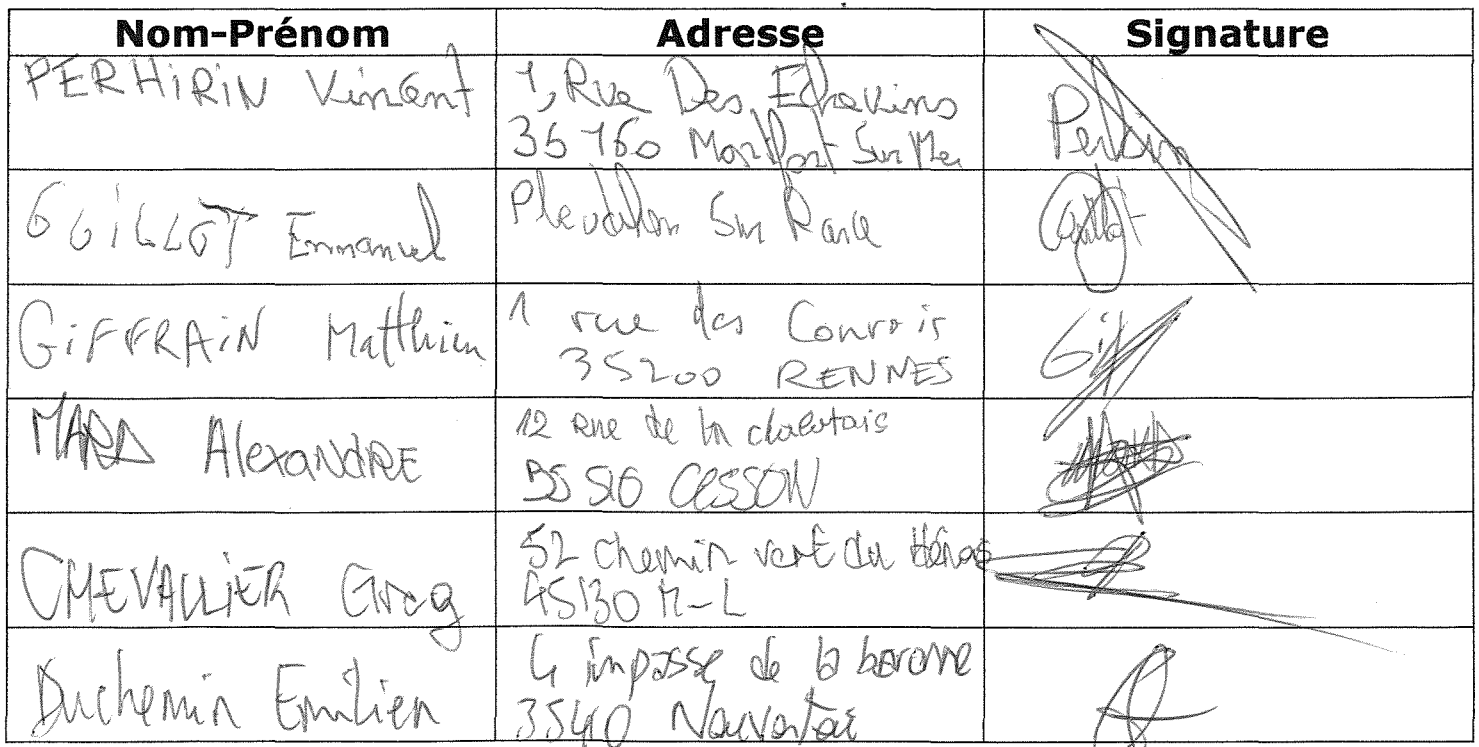 Nom-Prénom Adresse Signature
PERHIRIN Vincent
1, Rue Des Echevins
35160 Montfort Sur Meu
GUILLOT Emmanuel
Sur Rance
Guillot
GIFFRAIN Matthieu
1 rue des
35200 RENNES
Gif
Alexandre
12 Rue de la chalotais
35510 CESSON
CHEVALLIER Greg
52 chemin vert du
45130 M-L
Duchemin Emilien
4 impasse de la baronne